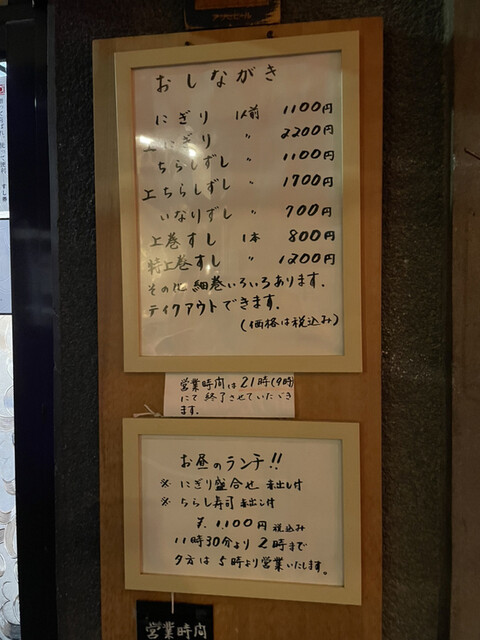 おしながき
にぎり 1人前 1100円
上にぎり 〃 2200円
ちらしずし 〃 1100円
上ちらしずし 〃 1700円
いなりずし 〃 700円
上巻すし 1本 800円
特上巻すし 〃 1200円
その他 細巻いろいろあります.
テイクアウトできます.
(価格は税込み)
営業時間は21時(9時)
にて終了させていただき
ます.
お昼のランチ!!
※ にぎり盛合せ 赤出し付
※ ちらし寿司 赤出し付
¥.1,100円 税込み
11時30分より2時まで
夕方は5時より営業いたします。
営業時間